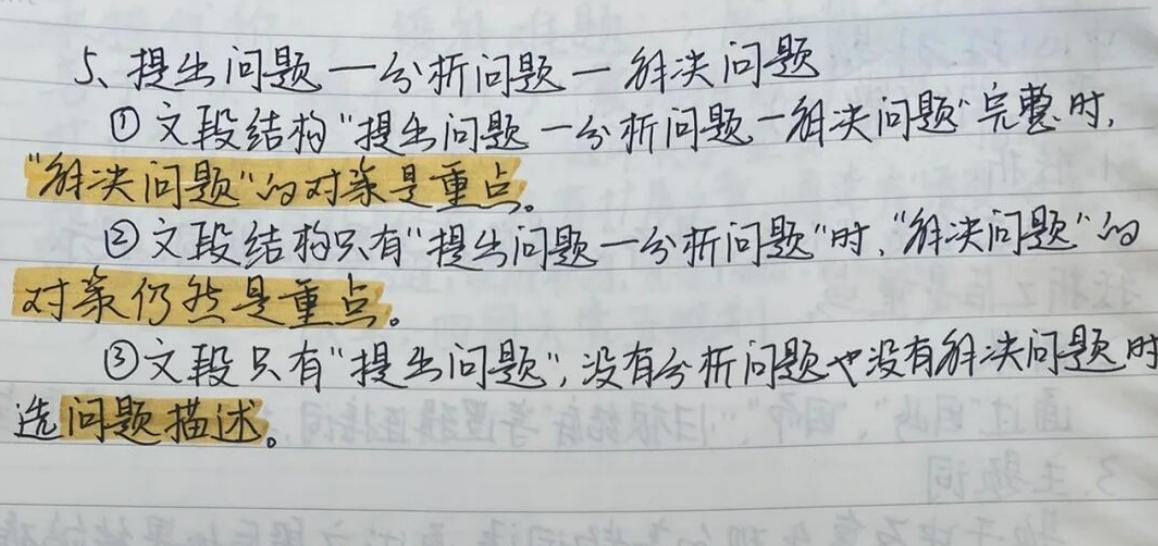 5、提出问题—分析问题—解决问题
①文段结构“提出问题—分析问题—解决问题”完整时,
“解决问题”的对策是重点。
②文段结构只有“提出问题—分析问题”时,“解决问题”的
对策仍然是重点。
③文段只有“提出问题”,没有分析问题也没有解决问题时
选问题描述。